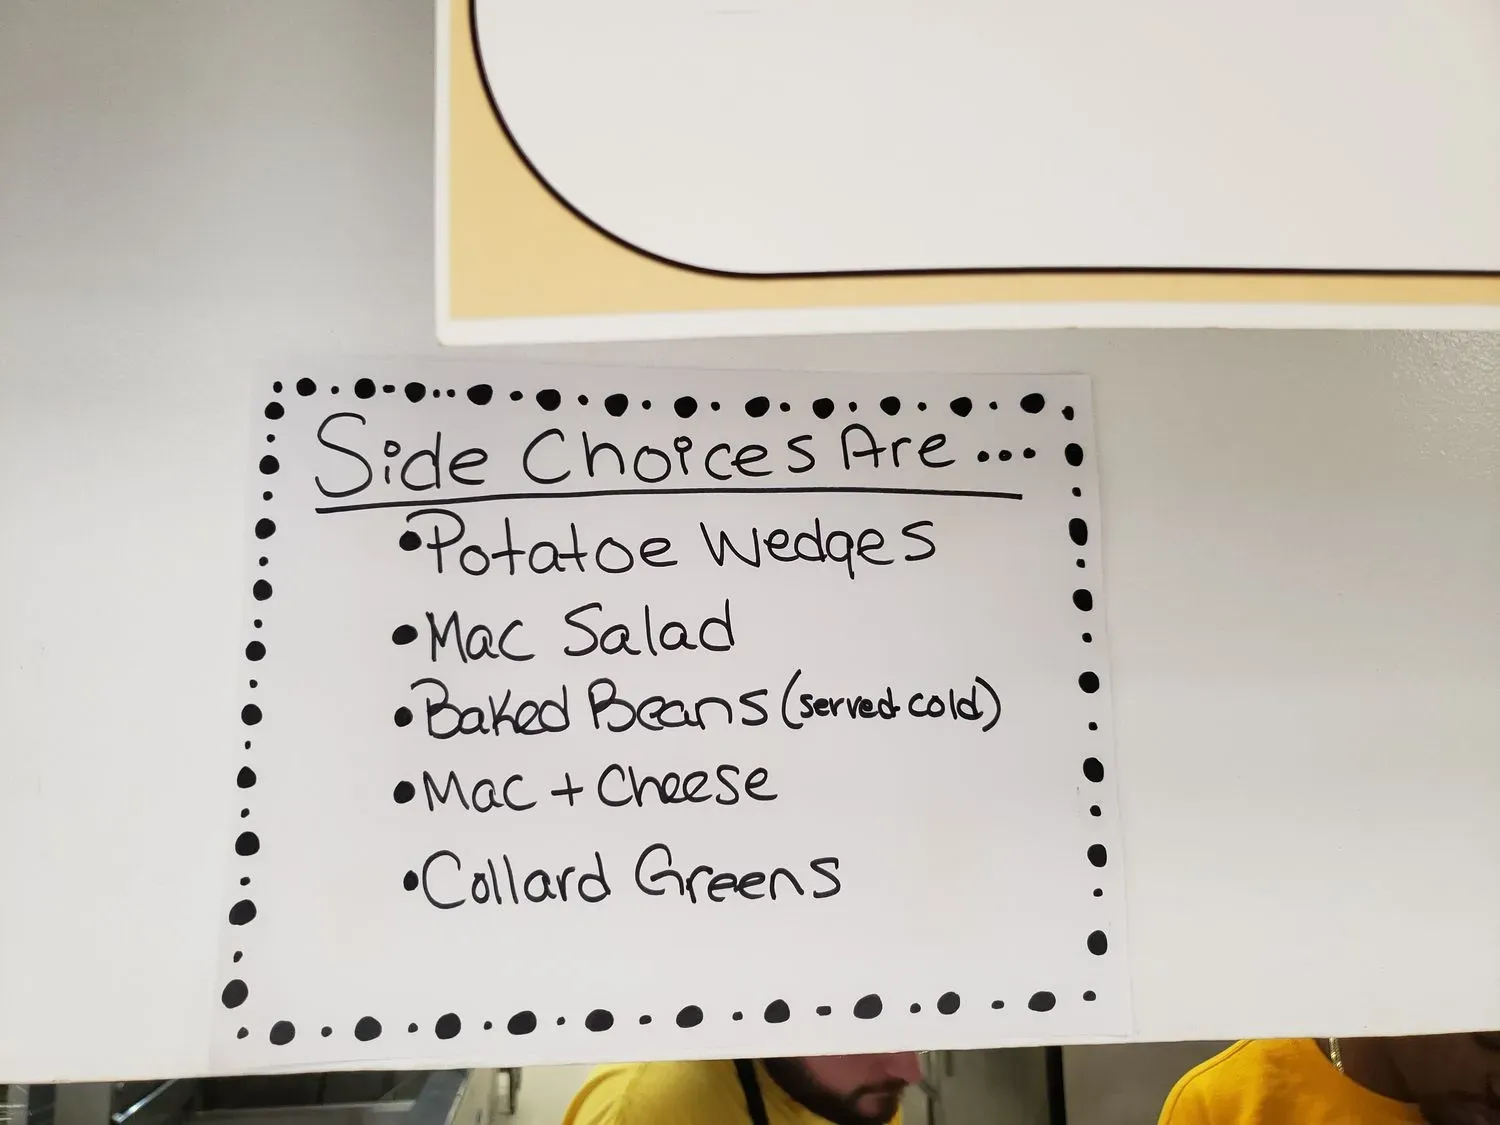 Side Choices Are...
•Potatoe Wedges
•Mac Salad
•Baked Beans (served cold)
•Mac + Cheese
•Collard Greens